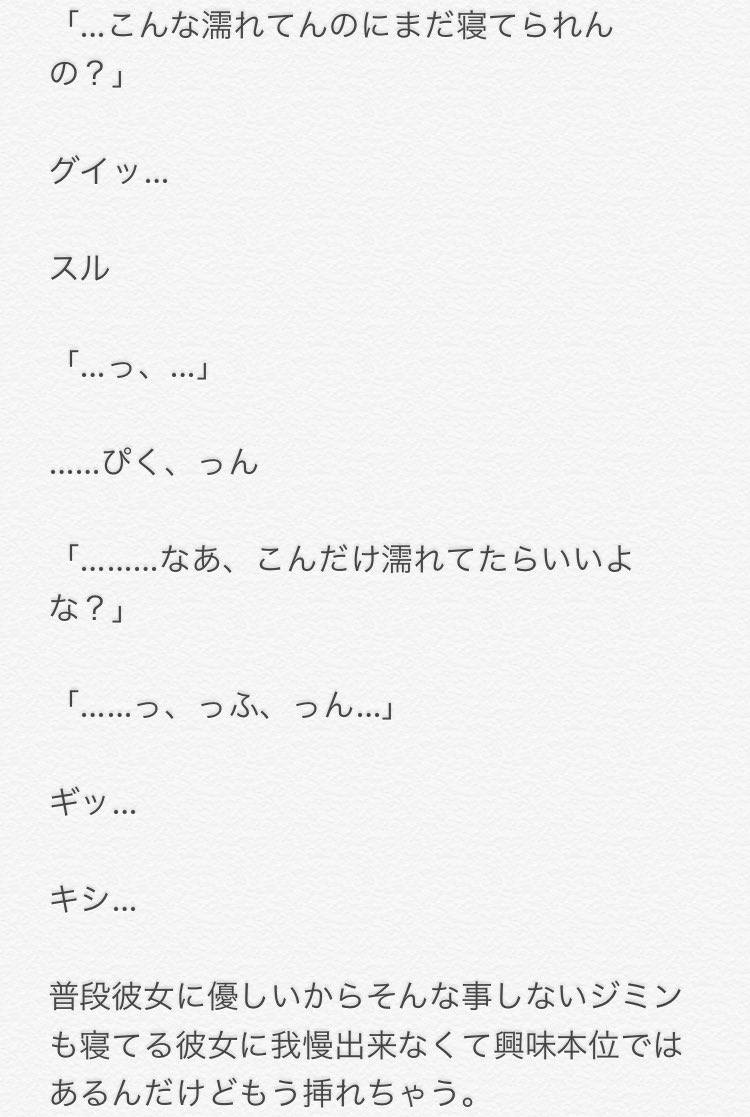 「…こんな濡れてんのにまだ寝てられん
の？」
グイッ…
スル
「…っ、…」
……ぴく、っん
「………なあ、こんだけ濡れてたらいいよ
な？」
「……っ、っふ、っん…」
ギッ…
キシ…
普段彼女に優しいからそんな事しないジミン
も寝てる彼女に我慢出来なくて興味本位では
あるんだけどもう挿れちゃう。